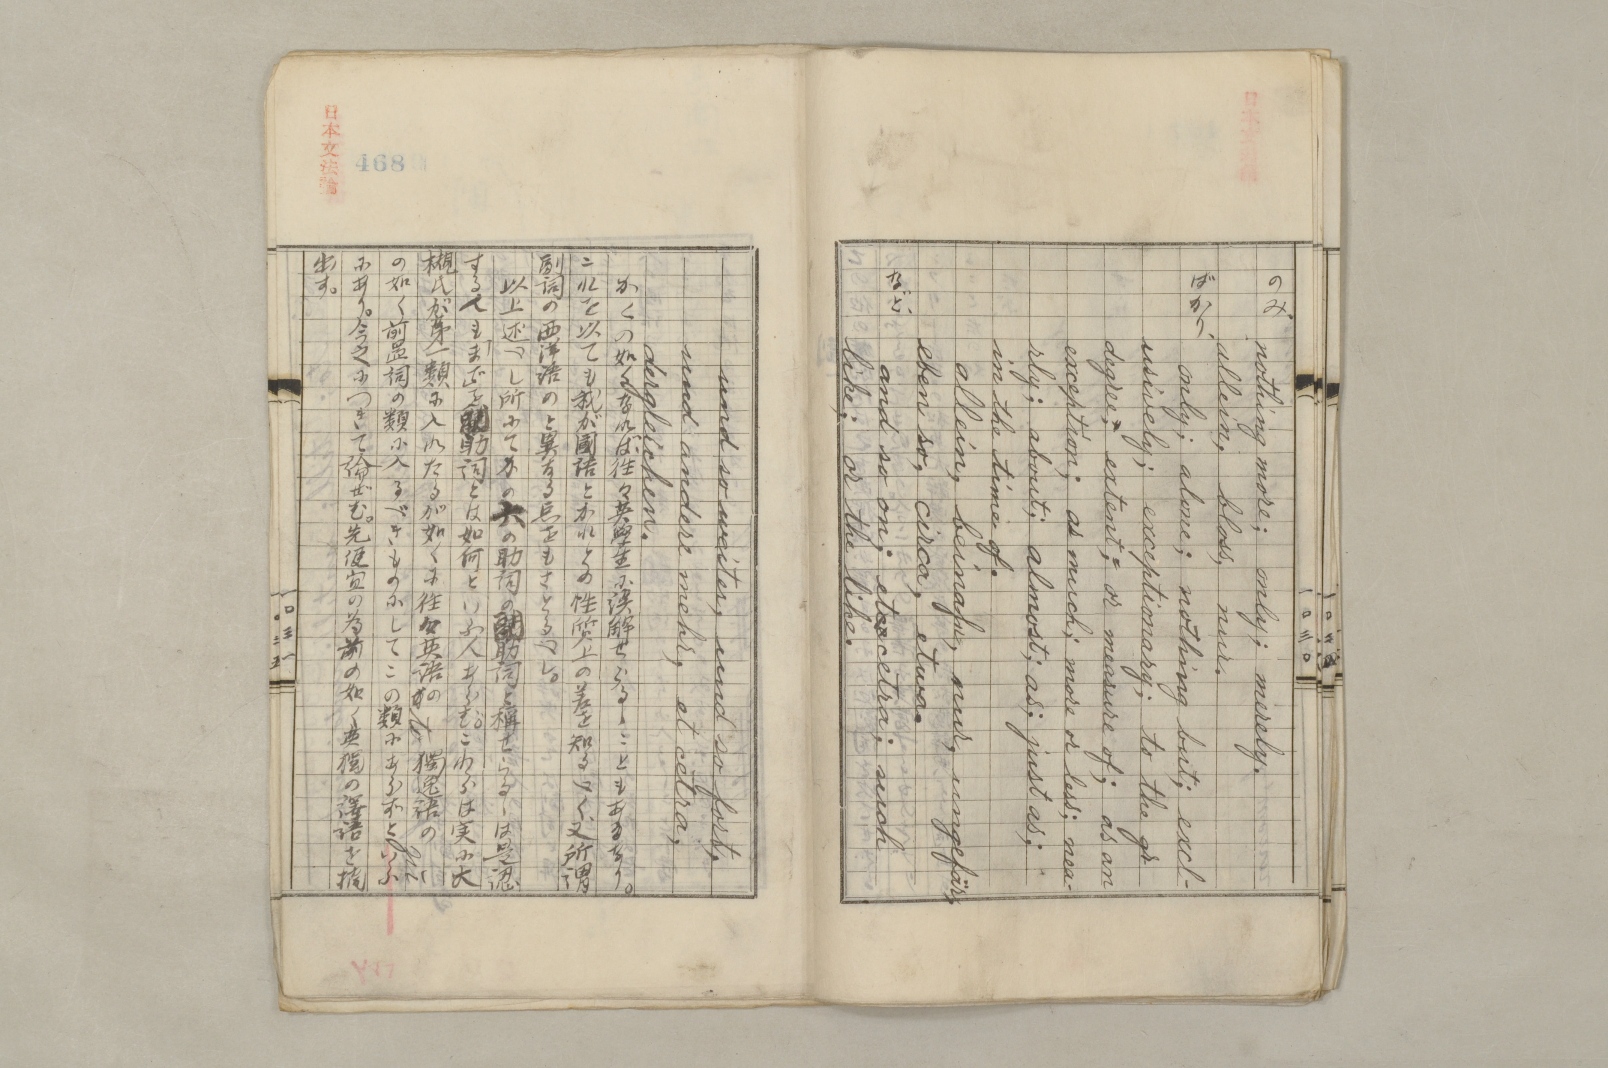 のみ、 nothing more; only; mirely.
allein, bloss, nur.
ばかり、 only; alone; nothing but; excl-
usively; exceptionary; to the
degree, extent, or measure of; as an
exception; as much; more or less; nea-
rly; about; almost; as; just as;
in the time of.
allein, beinahe, nur, ungefär,
eben so, circa, etwa.
など、 and so on; etcetra; such
like; or the like.
und so weiter, und so fort,
und andere mehr, et cetra,
dergleichen.
かくの如くなれば往々英學生に誤解せらるゝこともあるなり。
これを以ても我が國語とかれとの性質上の差を知るべく又所謂
副詞の西洋語のと異なる点をもさとるべし。
以上述べし所にてかの六の助詞の助詞と稱せらるゝは是認
する人もまづ助詞とは如何といふ人あらむ。これらは実に大
槻氏が第一類に入れたるが如くに往々英語の 獨逸語の
の如く前置詞の類に入るべきものにしてこの類にあらずといふ
にあり。今之につきて論ぜむ。先便宜の為前の如く英獨の譯語を摘
出す。
日本文法論
468
一〇三〇
一〇三一